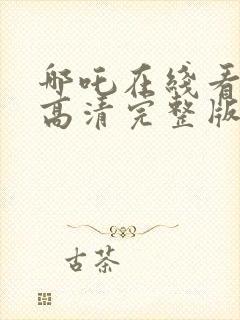 哪吒在线看
高清完整版
古茶